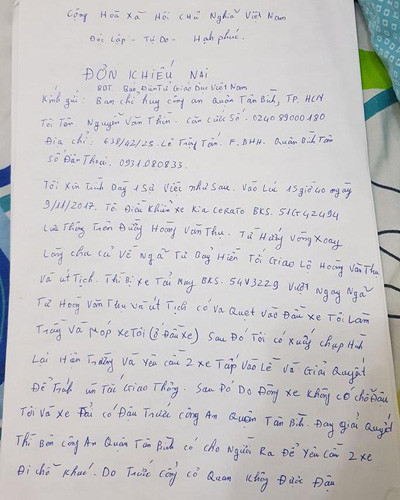 Cộng Hoà Xã Hội Chủ Nghĩa Việt Nam
Độc Lập - Tự Do - Hạnh phúc.
ĐƠN KHIẾU NẠI
BĐT Báo Điện Tử Giáo Dục Việt Nam
Kính gửi: Ban chỉ huy công an Quận Tân Bình, TP. HCM
Tôi Tên. Nguyễn Văn Thìn. Căn Cước Số. 024089000180
Địa chỉ: 638/42/25. Lê Trọng Tấn. F. BHH. Quận Bình Tân
số Điện Thoại. 0931.080833.
Tôi Xin Trình Bày 1 Sự Việc như Sau. Vào Lúc 15 giờ 40 ngày
9/11/2017. Tôi Điều Khiển Xe Kia Cerato BKS. 51G42494
Lưu Thông Trên Đường Hoàng Văn Thu. Từ Hướng Vòng Xoay
Lăng cha cả Về Ngã Tư Bảy Hiền Tới Giao Lộ Hoàng Văn Thu
Và Út Tịch. Thì Bị Xe Tải Mang BKS. 54V3229 Vượt Ngay Ngã
Tư Hoàng Văn Thu Và Út Tịch có Va Quẹt vào Đầu xe Tôi Làm
Trầy Và Móp Xe Tôi (ở Đầu Xe) Sau Đó Tôi có Xuống chụp Hình
Lại Hiện Trường Và Yêu Cầu 2 xe Tấp Vào Lề Và Giải Quyết
Để Tránh Ùn Tắc Giao Thông. Sau Đó Do Đông Xe Không Có chỗ Đậu
Tôi Và Xe Tải có Đậu Trước Công An Quận Tân Bình. Đang giải Quyết
Thì Bên Công An Quận Tân Bình có cho Người Ra Để Yêu Cầu 2 xe
Đi chỗ Khác. Do Trước Cổng cơ Quan Không Được Đậu